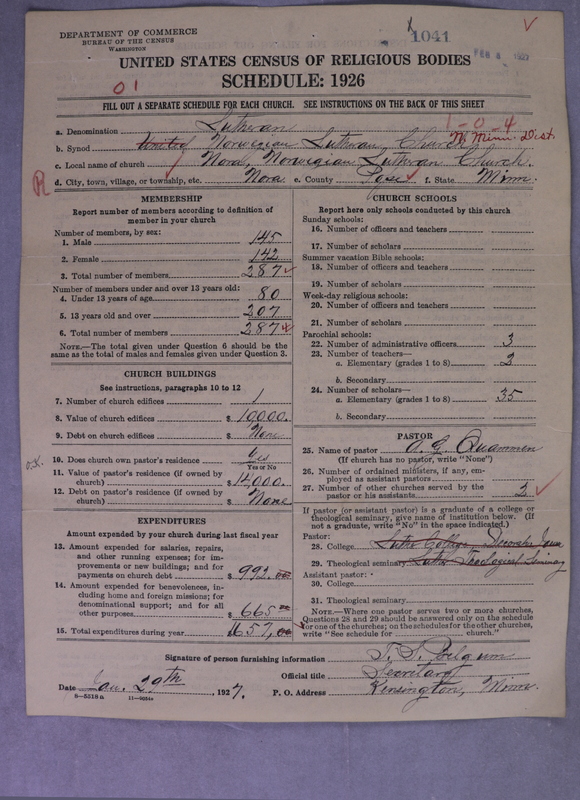 DEPARTMENT OF COMMERCE
BUREAU OF THE CENSUS
WASHINGTON
1041
FEB 8 1927
UNITED STATES CENSUS OF RELIGIOUS BODIES
SCHEDULE: 1926
01
FILL OUT A SEPARATE SCHEDULE FOR EACH CHURCH. SEE INSTRUCTIONS ON THE BACK OF THIS SHEET
1-0-4
a. Denomination Lutheran
N. Minn. Dist.
b. Synod United Norwegian Lutheran Church
c. Local name of church Nora, Norwegian Lutheran Church.
R
d. City, town, village, or township, etc. Nora e. County Pope f. State Minn.
MEMBERSHIP
Report number of members according to definition of member in your church
Number of members, by sex:
1. Male 145
2. Female 142
3. Total number of members 287
Number of members under and over 13 years old:
4. Under 13 years of age 80
5. 13 years old and over 207
6. Total number of members 287
NOTE.—The total given under Question 6 should be the same as the total of males and females given under Question 3.
CHURCH BUILDINGS
See instructions, paragraphs 10 to 12
7. Number of church edifices 1
8. Value of church edifices $ 10000.
9. Debt on church edifices $ None
o.k.
10. Does church own pastor's residence Yes
Yes or No
11. Value of pastor's residence (if owned by church) $ 14,000.
12. Debt on pastor's residence (if owned by church) $ None
EXPENDITURES
Amount expended by your church during last fiscal year
13. Amount expended for salaries, repairs, and other running expenses; for improvements or new buildings; and for payments on church debt $ 992.00
14. Amount expended for benevolences, including home and foreign missions; for denominational support; and for all other purposes $ 665.00
15. Total expenditures during year $ 1657.00
CHURCH SCHOOLS
Report here only schools conducted by this church
Sunday schools:
16. Number of officers and teachers
17. Number of scholars
Summer vacation Bible schools:
18. Number of officers and teachers
19. Number of scholars
Week-day religious schools:
20. Number of officers and teachers
21. Number of scholars
Parochial schools:
22. Number of administrative officers 3
23. Number of teachers—
a. Elementary (grades 1 to 8) 2
b. Secondary
24. Number of scholars—
a. Elementary (grades 1 to 8) 35
b. Secondary
PASTOR
25. Name of pastor A. G. Quammen
(If church has no pastor, write "None")
26. Number of ordained ministers, if any, employed as assistant pastors
27. Number of other churches served by the pastor or his assistants 2
If pastor (or assistant pastor) is a graduate of a college or theological seminary, give name of institution below. (If not a graduate, write "No" in the space indicated.)
Pastor:
28. College Luther College Decorah Iowa
29. Theological seminary Luther Theological Seminary
Assistant pastor:
30. College
31. Theological seminary
NOTE.—Where one pastor serves two or more churches, Questions 28 and 29 should be answered only on the schedule for one of the churches; on the schedules for the other churches, write "See schedule for church."
Signature of person furnishing information T. T. Belgum
Official title Secretary
Date Jan. 29th, 1927. P. O. Address Kensington, Minn.
8—5518a 11—9034a